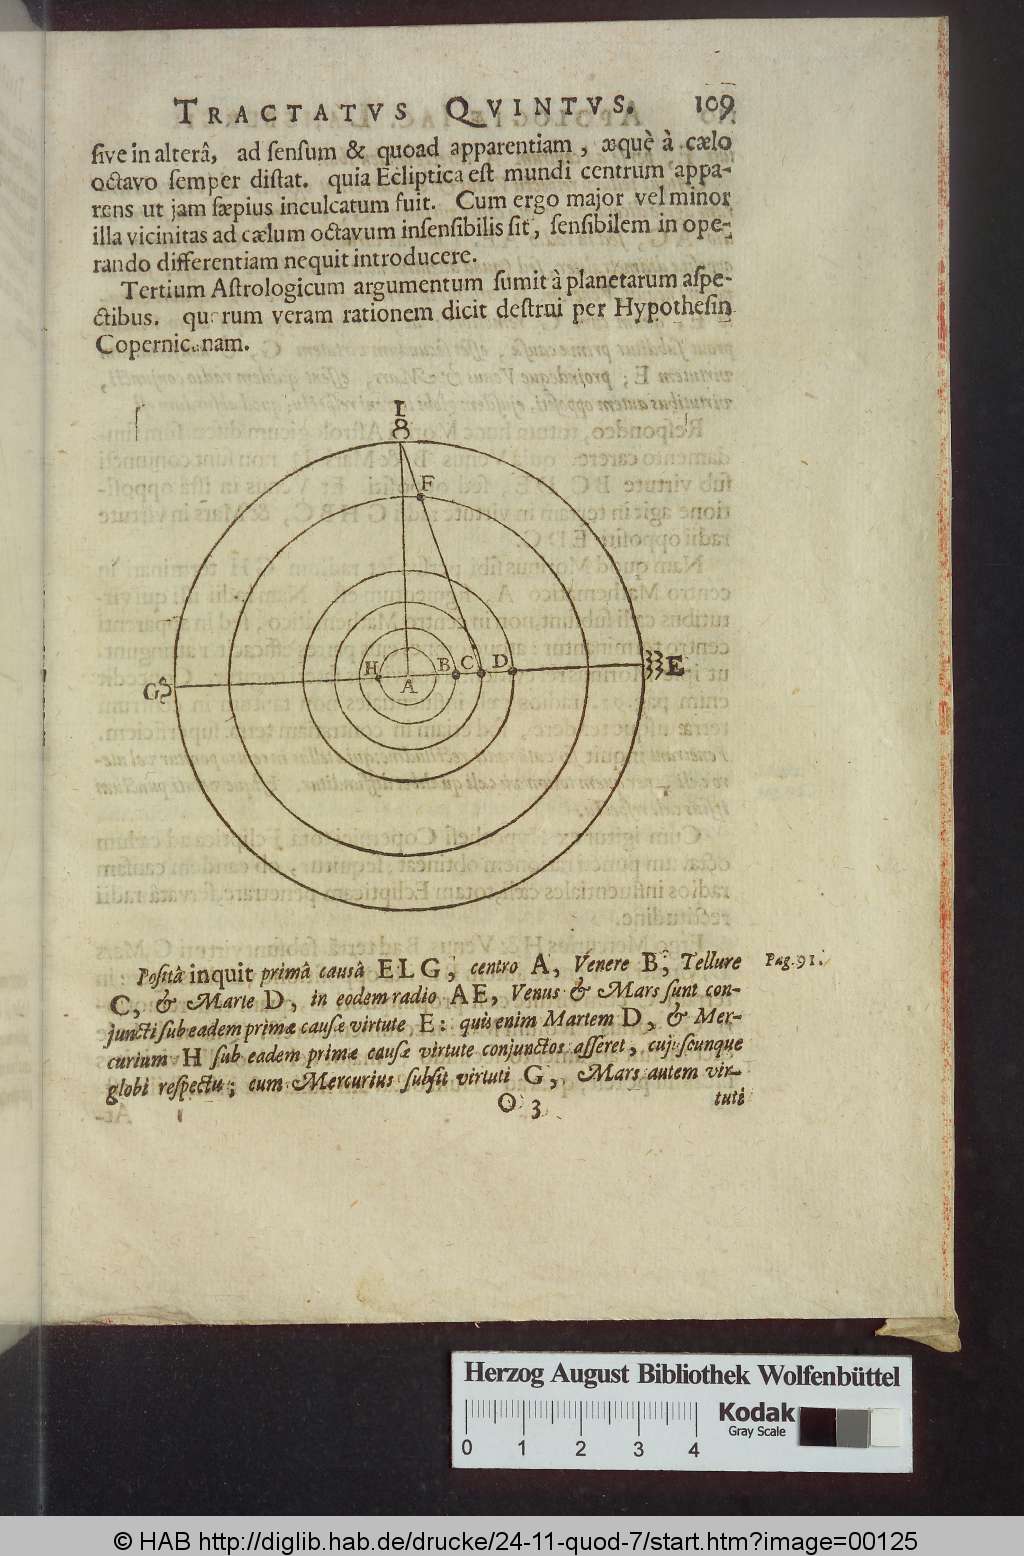 TRACTATVS QVINTVS. 109
ſive in alterâ, ad ſenſum & quoad apparentiam, æquè à cælo
octavo ſemper diſtat. quia Ecliptica eſt mundi centrum appa-
rens ut jam ſæpius inculcatum fuit. Cum ergo major vel minor
illa vicinitas ad cælum octavum inſenſibilis ſit, ſenſibilem in ope-
rando differentiam nequit introducere.
Tertium Aſtrologicum argumentum ſumit à planetarum aſpe-
ctibus. quorum veram rationem dicit deſtrui per Hypotheſin
Copernicanam.
I
♉
F
H
B
C
D
A
G
E
Poſitâ inquit primâ causâ ELG, centro A, Venere B, Tellure Pag. 91.
C, & Marte D, in eodem radio AE, Venus & Mars ſunt con-
juncti ſub eadem primæ cauſæ virtute E: quis enim Martem D, & Mer-
curium H ſub eadem primæ cauſæ virtute conjunctos aſſeret, cujuſcunque
globi reſpectu; cum Mercurius ſubſit virtuti G, Mars autem vir-
O 3 tuti
Herzog August Bibliothek Wolfenbüttel
Kodak
Gray Scale
0 1 2 3 4
© HAB http://diglib.hab.de/drucke/24-11-quod-7/start.htm?image=00125